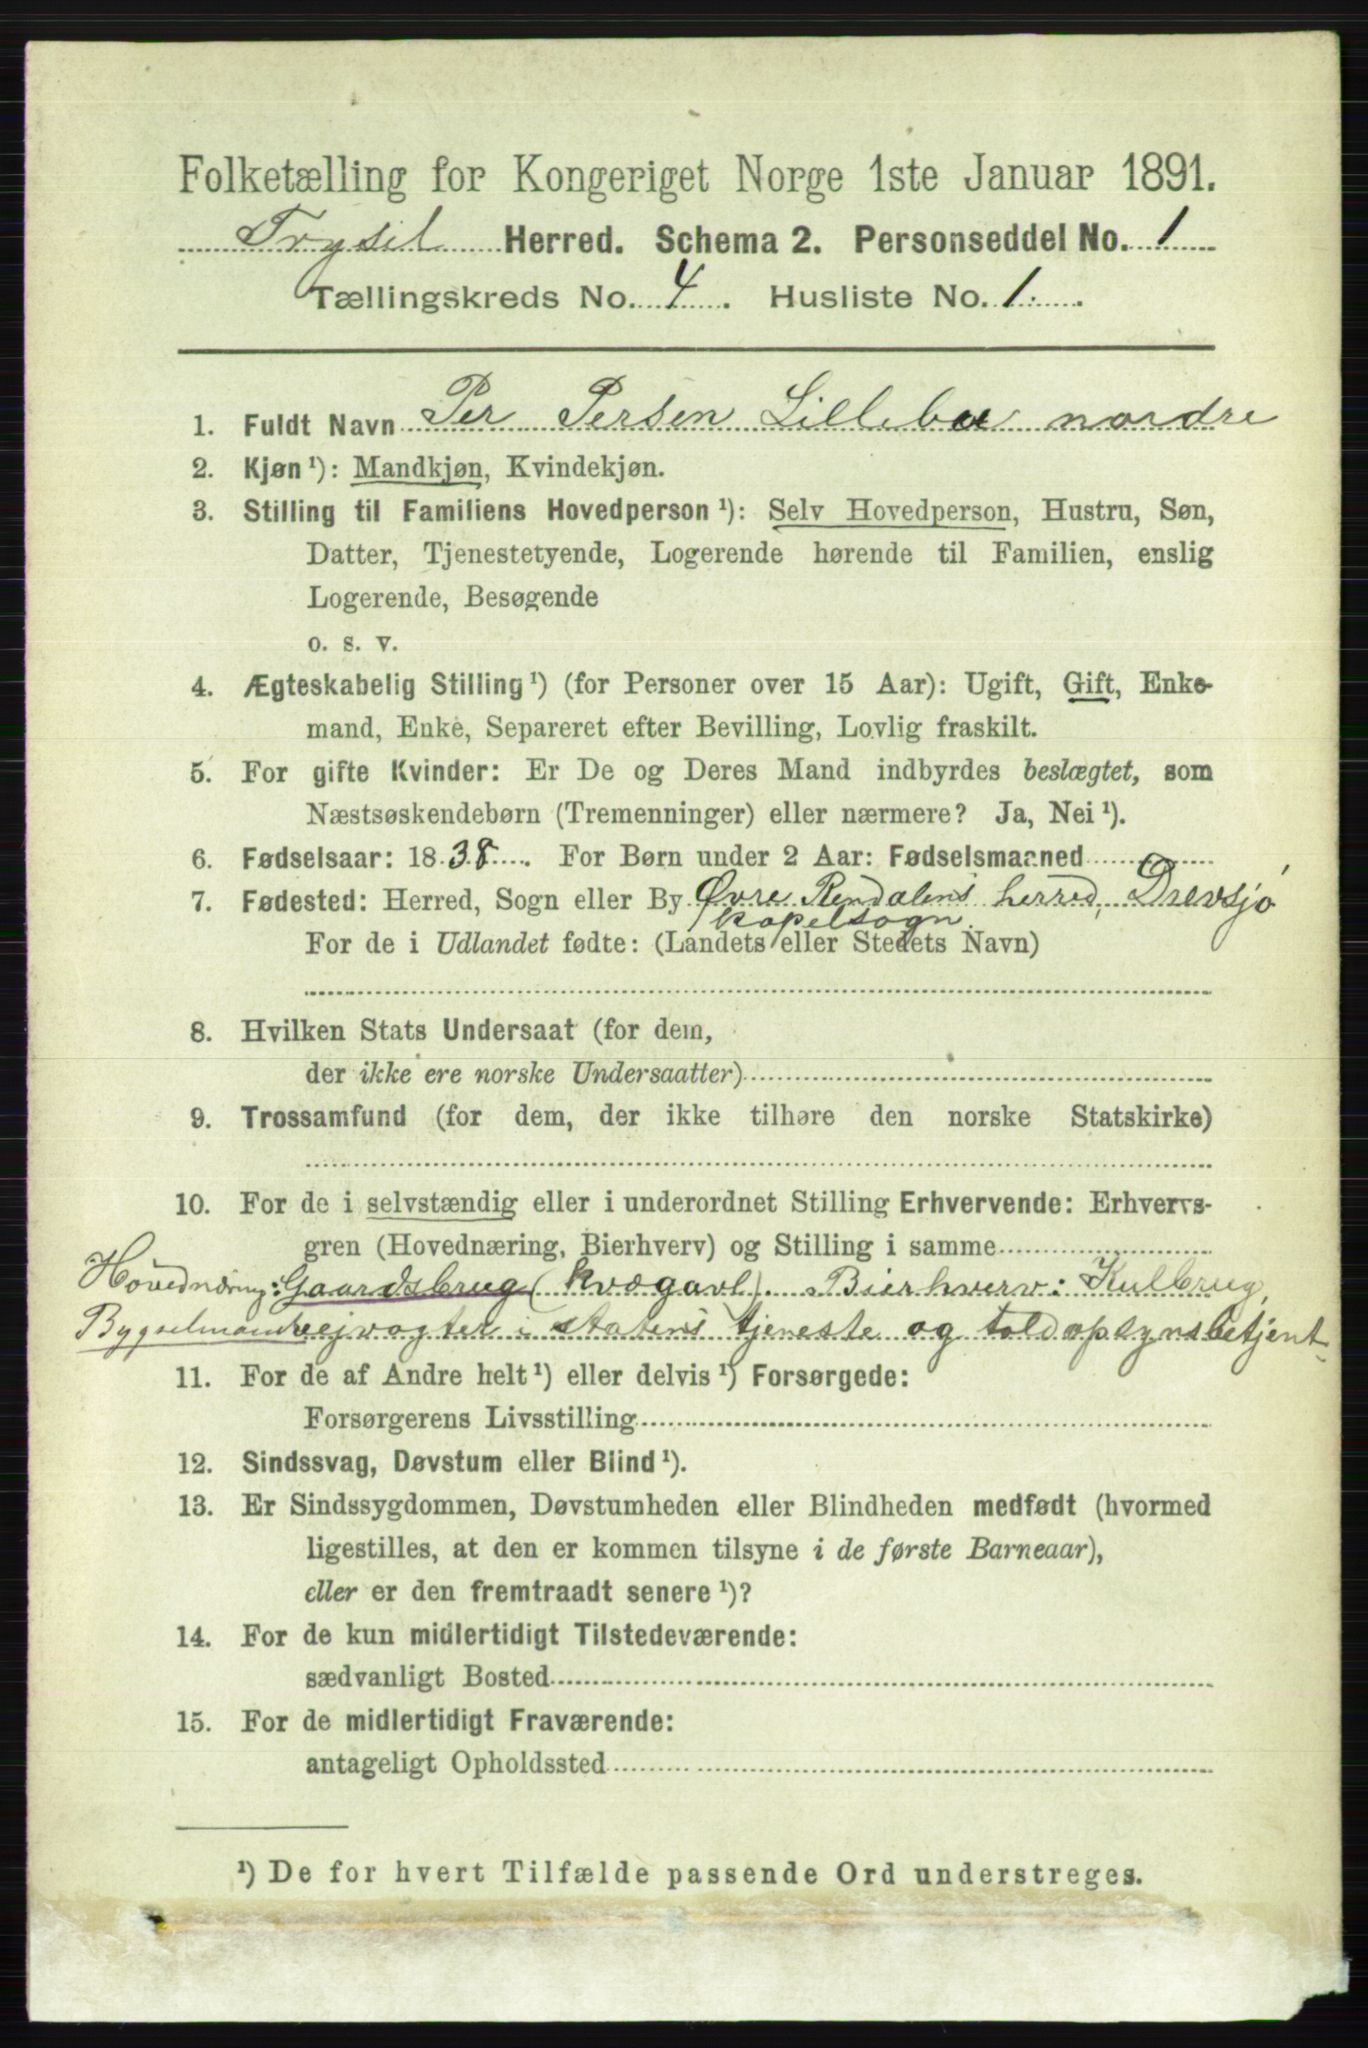 Folketælling for Kongeriget Norge 1ste Januar 1891.
Trysil Herred. Schema 2. Personseddel No. 1
Tællingskreds No. 4. Husliste No. 1.
1. Fuldt Navn Per Persen Lillebo nordre
2. Kjøn ¹): Mandkjøn, Kvindekjøn.
3. Stilling til Familiens Hovedperson ¹): Selv Hovedperson, Hustru, Søn,
Datter, Tjenestetyende, Logerende hørende til Familien, enslig
Logerende, Besøgende
o. s. v.
4. Ægteskabelig Stilling ¹) (for Personer over 15 Aar): Ugift, Gift, Enke-
mand, Enke, Separeret efter Bevilling, Lovlig fraskilt.
5. For gifte Kvinder: Er De og Deres Mand indbyrdes beslægtet, som
Næstsøskendebørn (Tremenninger) eller nærmere? Ja, Nei ¹).
6. Fødselsaar: 1838. For Børn under 2 Aar: Fødselsmaaned
7. Fødested: Herred, Sogn eller By Øvre Rendalens herred, Drevsjø
kapelsogn.
For de i Udlandet fødte: (Landets eller Stedets Navn)
8. Hvilken Stats Undersaat (for dem,
der ikke ere norske Undersaatter)
9. Trossamfund (for dem, der ikke tilhøre den norske Statskirke)
10. For de i selvstændig eller i underordnet Stilling Erhvervende: Erhvervs-
gren (Hovednæring, Bierhverv) og Stilling i samme
Hovednæring: Gaardsbrug (kvægavl). Bierhverv: Kulbrug,
Bygselmand vogter i statens tjeneste og toldopsynsbetjent
11. For de af Andre helt ¹) eller delvis ¹) Forsørgede:
Forsørgerens Livsstilling
12. Sindssvag, Døvstum eller Blind ¹).
13. Er Sindssygdommen, Døvstumheden eller Blindheden medfødt (hvormed
ligestilles, at den er kommen tilsyne i de første Barneaar),
eller er den fremtraadt senere ¹)?
14. For de kun midlertidigt Tilstedeværende:
sædvanligt Bosted
15. For de midlertidigt Fraværende:
antageligt Opholdssted
¹) De for hvert Tilfælde passende Ord understreges.